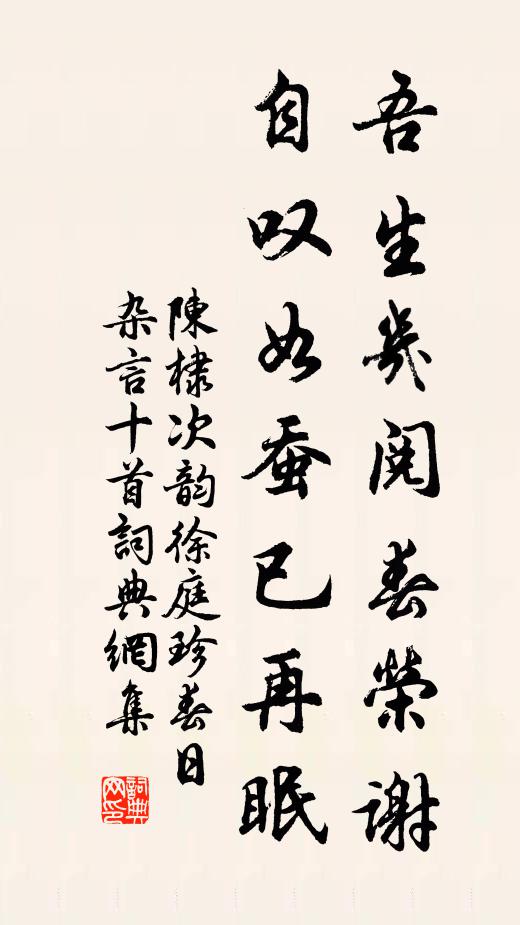 吾生幾閱春榮謝
自叹如蚕已再眠
陳棣次韵徐庭珍春日
杂言十首詞典網集
詞典网印